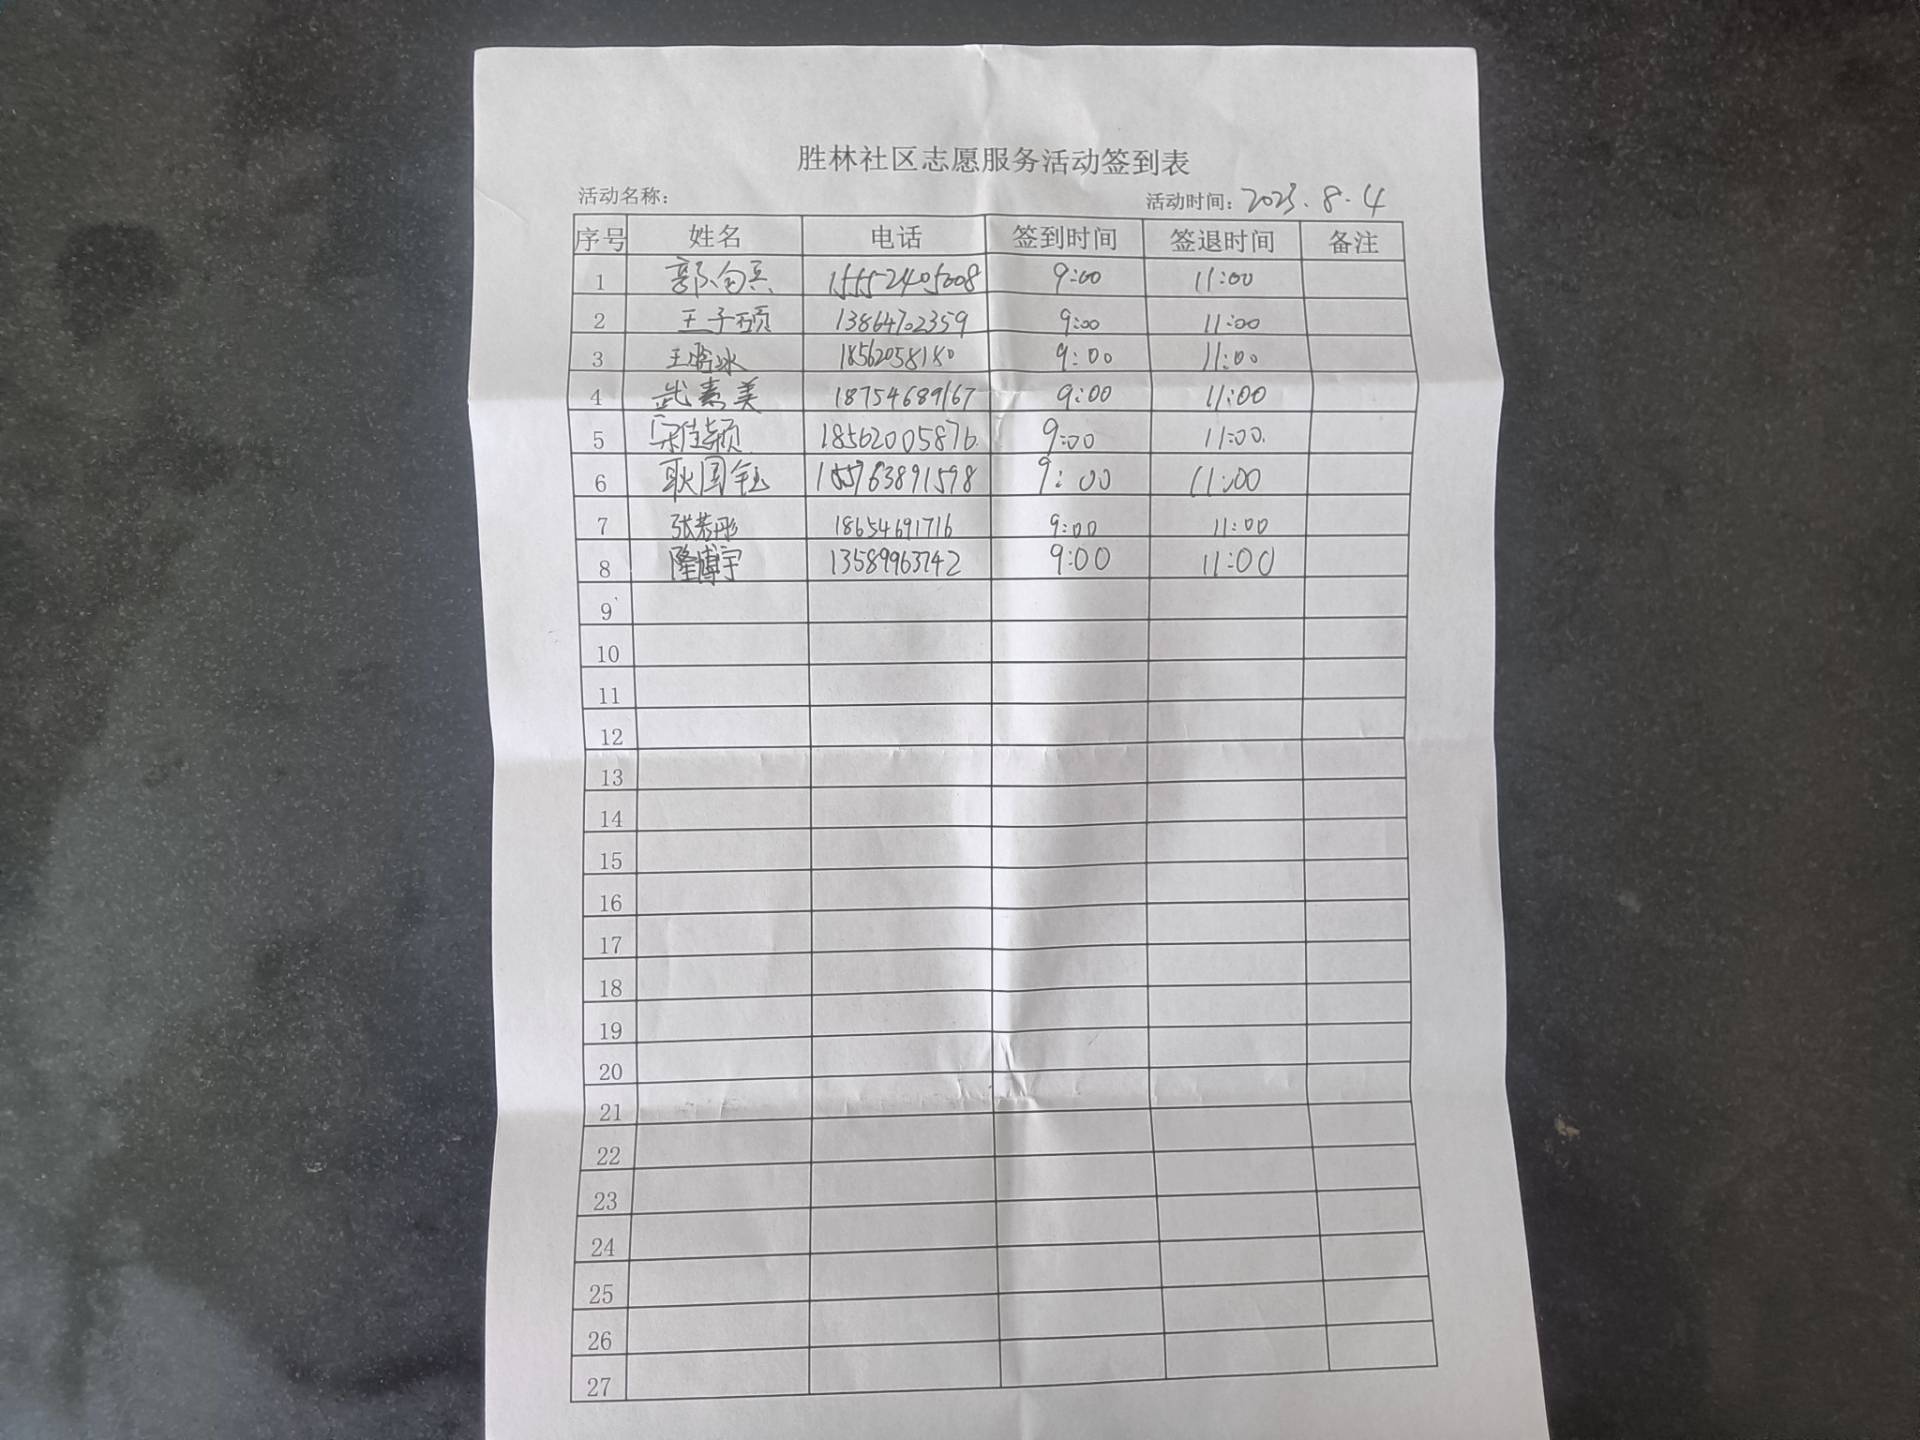 胜林社区志愿服务活动签到表
活动名称: 活动时间: 2023.8.4
序号 姓名 电话 签到时间 签退时间 备注
1 15552405008 9:00 11:00
2 王子硕 13864702359 9:00 11:00
3 18562058180 9:00 11:00
4 武素美 18754689167 9:00 11:00
5 宋佳颖 18562005876 9:00 11:00
6 耿国钰 9:00 11:00
7 18654691716 9:00 11:00
8 隆博宇 13589963742 9:00 11:00
9
10
11
12
13
14
15
16
17
18
19
20
21
22
23
24
25
26
27